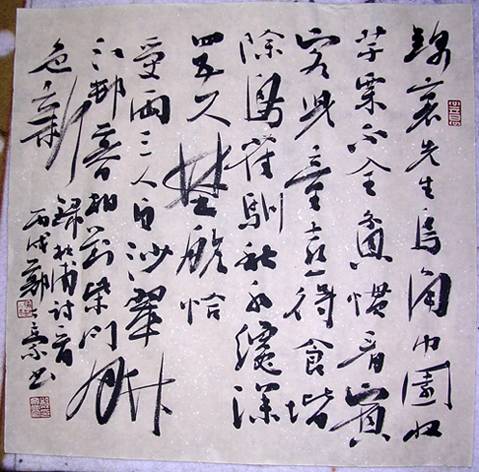 錦裏先生烏角巾園收
芋栗不全貧慣看賓
客兒童喜得食階
除鳥雀馴秋水纔深
四五尺野航恰
受兩三人白沙翠竹
江邨暮相對柴門月
色新
杜甫詩
丙戌鄭書